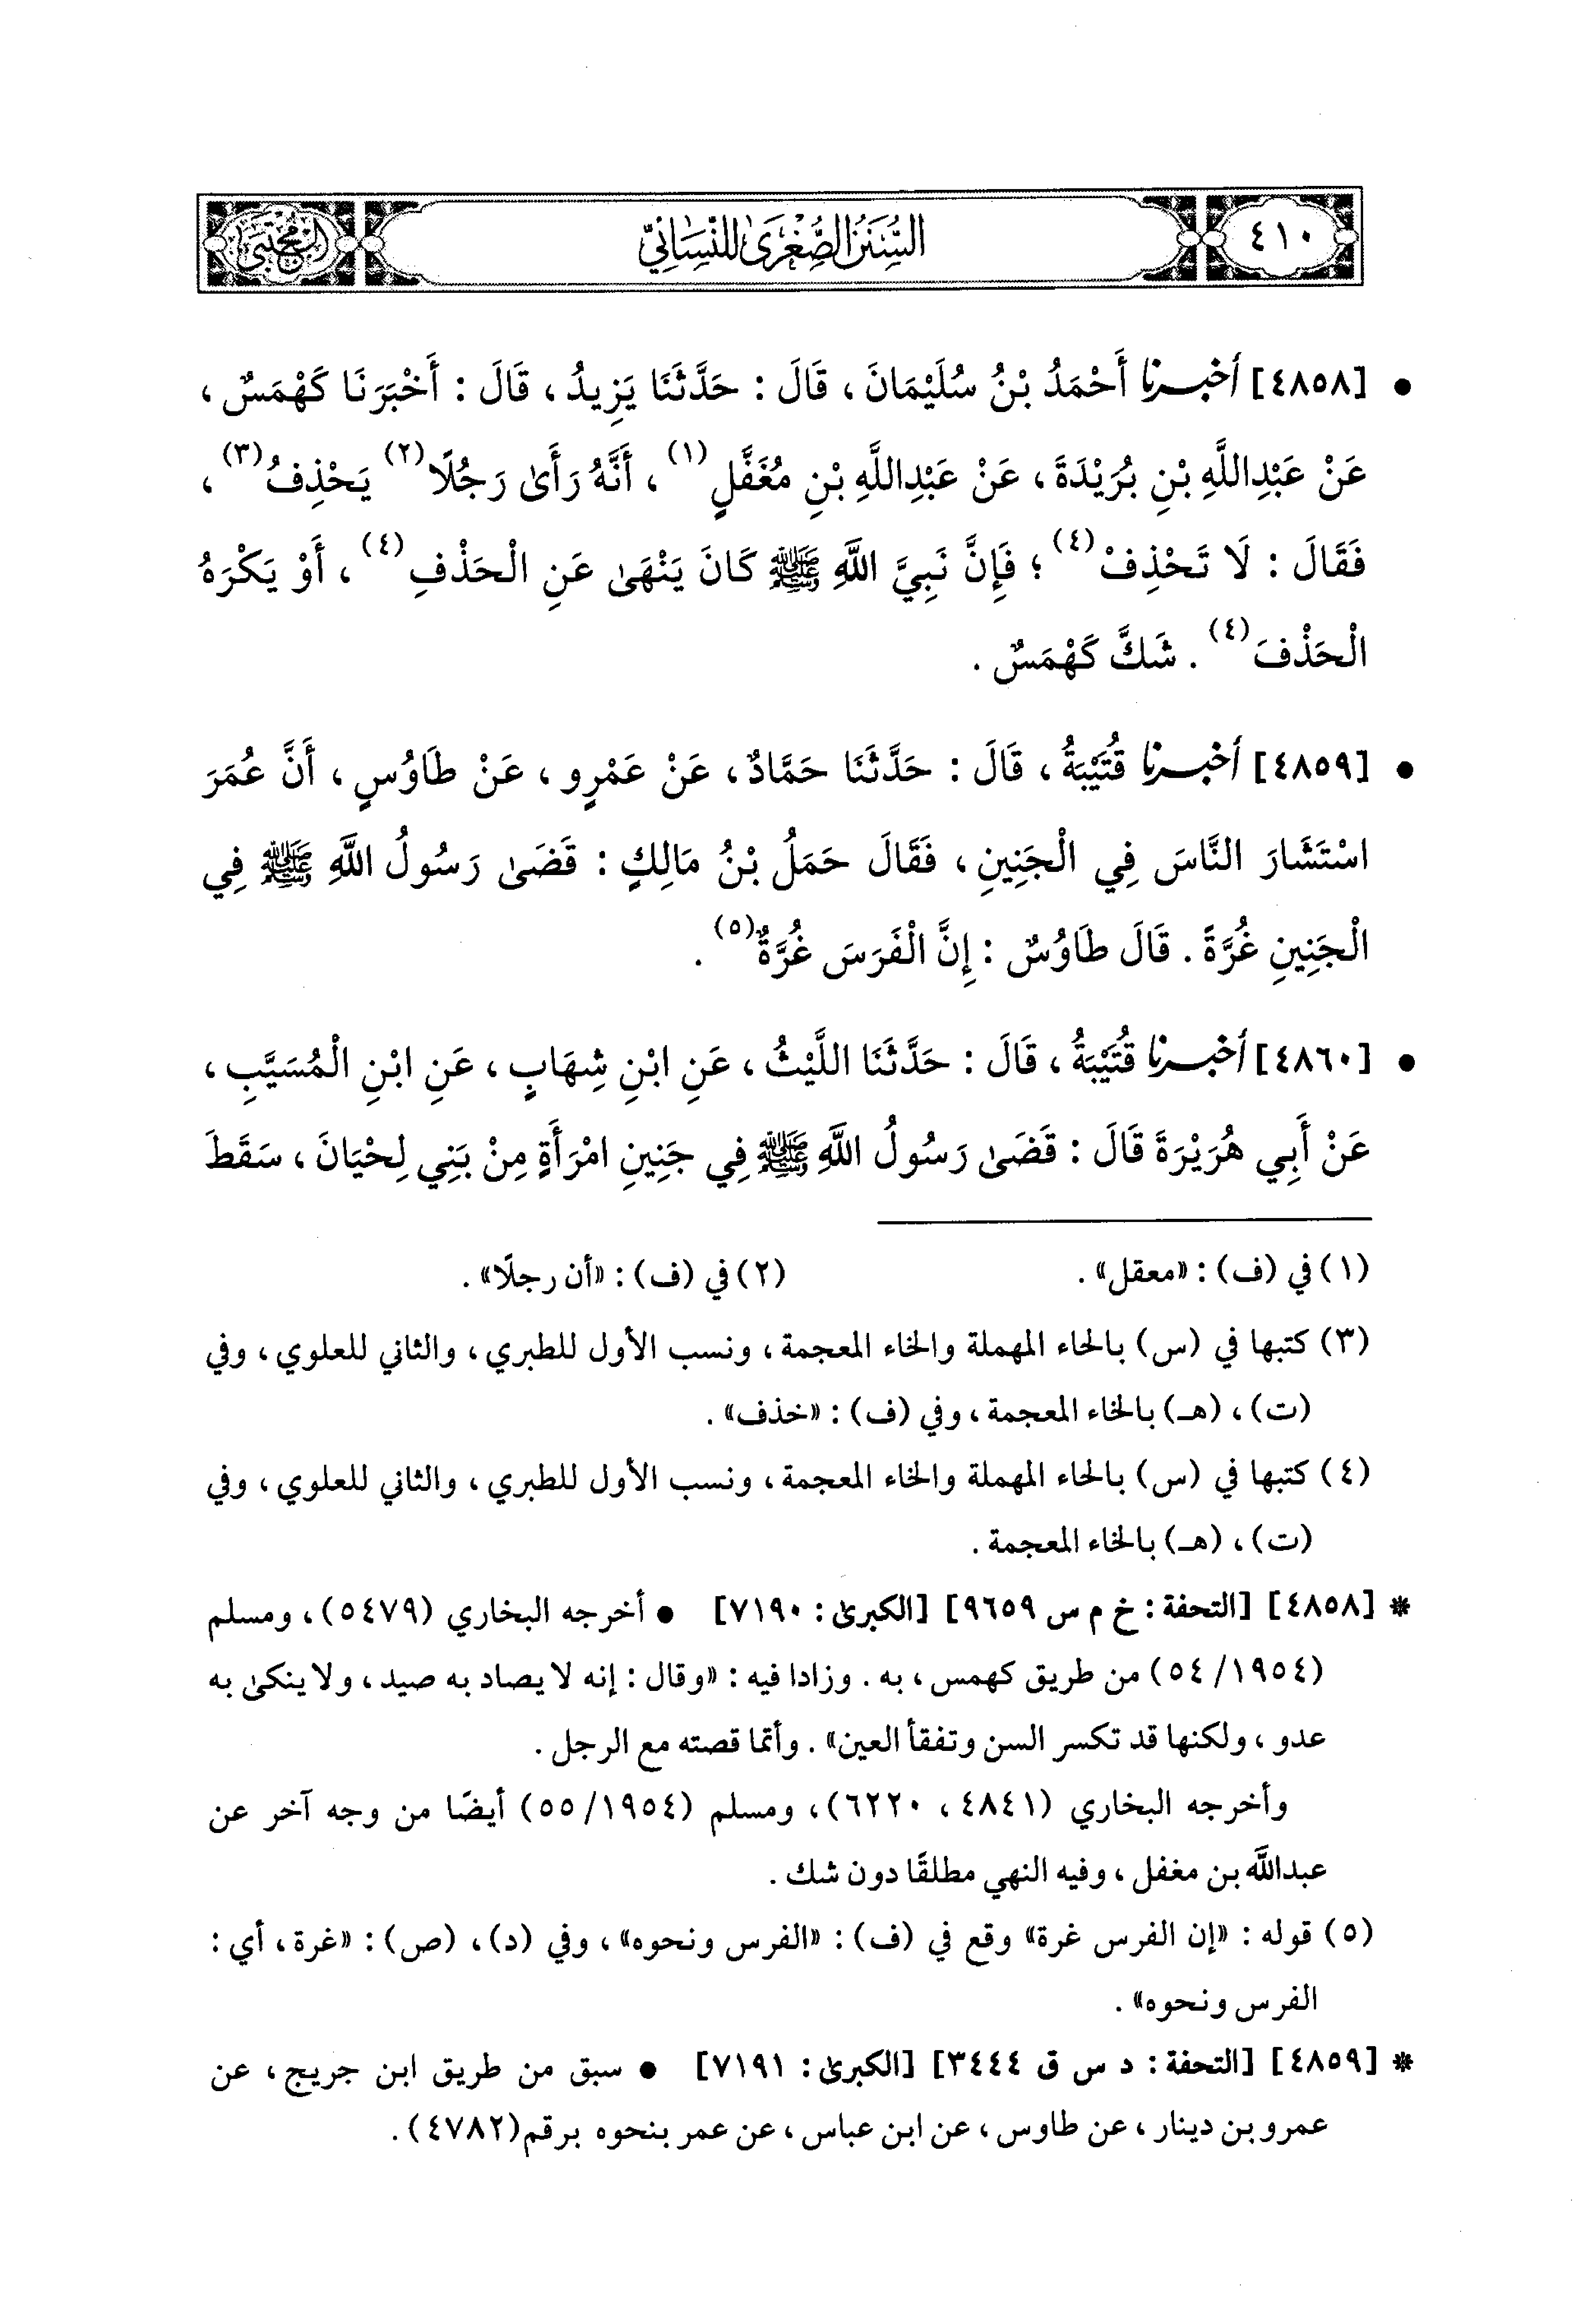 ٤١٠
السُّنَنُ الصُّغْرَىٰ للنَّسَائِيِّ
المجتبى
• [٤٨٥٨] أخبرنا أَحْمَدُ بْنُ سُلَيْمَانَ ، قَالَ : حَدَّثَنَا يَزِيدُ ، قَالَ : أَخْبَرَنَا كَهْمَسٌ ،
عَنْ عَبْدِاللَّهِ بْنِ بُرَيْدَةَ ، عَنْ عَبْدِاللَّهِ بْنِ مُغَفَّلٍ(١) ، أَنَّهُ رَأَىٰ رَجُلًا(٢) يَحْذِفُ(٣) ،
فَقَالَ : لَا تَحْذِفْ(٤) ؛ فَإِنَّ نَبِيَّ اللَّهِ ﷺ كَانَ يَنْهَىٰ عَنِ الْحَذْفِ(٤) ، أَوْ يَكْرَهُ
الْحَذْفَ(٤) . شَكَّ كَهْمَسٌ .
• [٤٨٥٩] أخبرنا قُتَيْبَةُ ، قَالَ : حَدَّثَنَا حَمَّادٌ ، عَنْ عَمْرٍو ، عَنْ طَاوُسٍ ، أَنَّ عُمَرَ
اسْتَشَارَ النَّاسَ فِي الْجَنِينِ ، فَقَالَ حَمَلُ بْنُ مَالِكٍ : قَضَىٰ رَسُولُ اللَّهِ ﷺ فِي
الْجَنِينِ غُرَّةً . قَالَ طَاوُسٌ : إِنَّ الْفَرَسَ غُرَّةٌ(٥) .
• [٤٨٦٠] أخبرنا قُتَيْبَةُ ، قَالَ : حَدَّثَنَا اللَّيْثُ ، عَنِ ابْنِ شِهَابٍ ، عَنِ ابْنِ الْمُسَيَّبِ ،
عَنْ أَبِي هُرَيْرَةَ قَالَ : قَضَىٰ رَسُولُ اللَّهِ ﷺ فِي جَنِينِ امْرَأَةٍ مِنْ بَنِي لِحْيَانَ ، سَقَطَ
(١) في (ف) : «معقل» . (٢) في (ف) : «أن رجلًا» .
(٣) كتبها في (س) بالحاء المهملة والخاء المعجمة ، ونسب الأول للطبري ، والثاني للعلوي ، وفي
(ت) ، (هـ) بالخاء المعجمة ، وفي (ف) : «خذف» .
(٤) كتبها في (س) بالحاء المهملة والخاء المعجمة ، ونسب الأول للطبري ، والثاني للعلوي ، وفي
(ت) ، (هـ) بالخاء المعجمة .
* [٤٨٥٨] [التحفة : خ م س ٩٦٥٩] [الكبرىٰ : ٧١٩٠] • أخرجه البخاري (٥٤٧٩) ، ومسلم
(٥٤/١٩٥٤) من طريق كهمس ، به . وزادا فيه : «وقال : إنه لا يصاد به صيد ، ولا ينكىٰ به
عدو ، ولكنها قد تكسر السن وتفقأ العين» . وأتما قصته مع الرجل .
وأخرجه البخاري (٤٨٤١ ، ٦٢٢٠) ، ومسلم (٥٥/١٩٥٤) أيضًا من وجه آخر عن
عبداللَّه بن مغفل ، وفيه النهي مطلقًا دون شك .
(٥) قوله : «إن الفرس غرة» وقع في (ف) : «الفرس ونحوه» ، وفي (د) ، (ص) : «غرة ، أي :
الفرس ونحوه» .
* [٤٨٥٩] [التحفة : د س ق ٣٤٤٤] [الكبرىٰ : ٧١٩١] • سبق من طريق ابن جريج ، عن
عمرو بن دينار ، عن طاوس ، عن ابن عباس ، عن عمر بنحوه برقم (٤٧٨٢) .